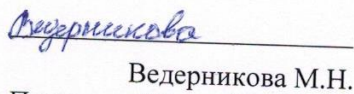 Ведерникова
Ведерникова М.Н.